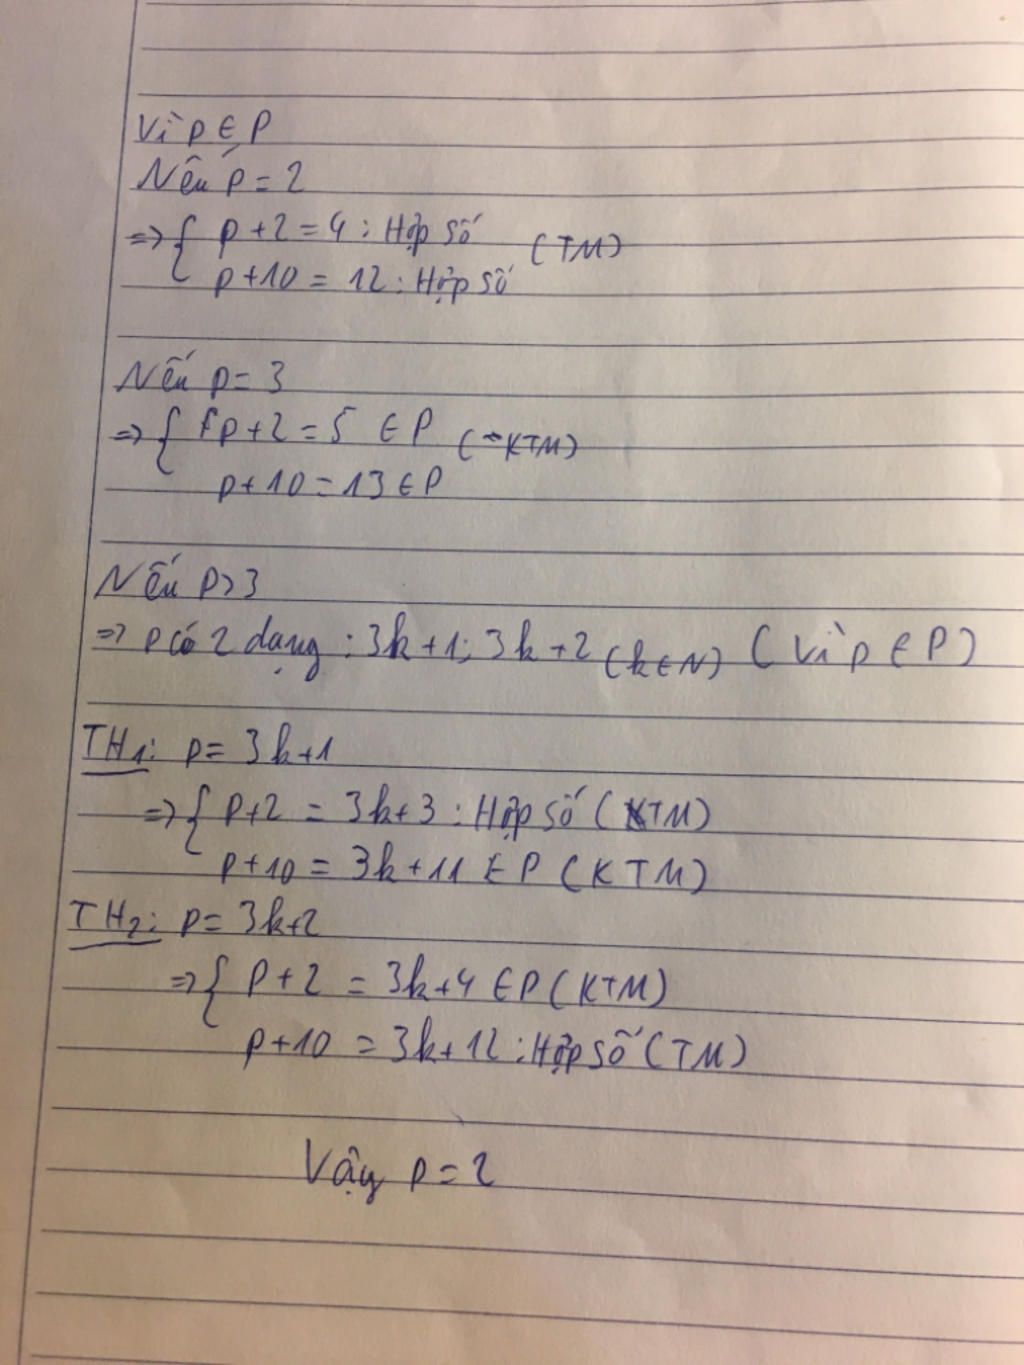 Vì p ∈ P
Nếu p = 2
=> { p + 2 = 4 : Hợp số (TM)
p + 10 = 12 : Hợp số
Nếu p = 3
=> { p + 2 = 5 ∈ P (KTM)
p + 10 = 13 ∈ P
Nếu p > 3
=> p có 2 dạng : 3k + 1; 3k + 2 (k ∈ N) (Vì p ∈ P)
TH1: p = 3k + 1
=> { p + 2 = 3k + 3 : Hợp số (TM)
p + 10 = 3k + 11 ∈ P (KTM)
TH2: p = 3k + 2
=> { p + 2 = 3k + 4 ∈ P (KTM)
p + 10 = 3k + 12 : Hợp số (TM)
Vậy p = 2